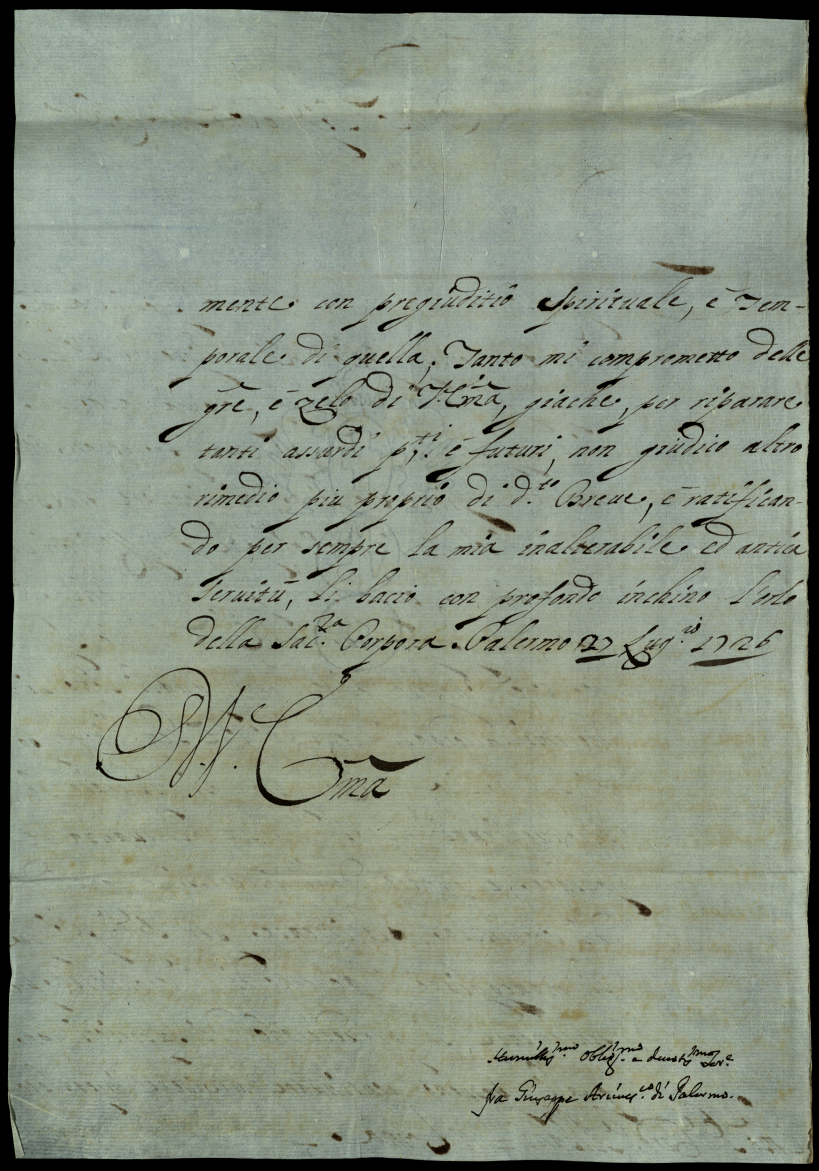 mente con pregiuditio spirituale, è tem-
porale di quella; Tanto mi comprometto delle
gr̃e, è zelo di V. Em̃a, giache, per riparare
tanti assurdi p.ti, è futuri, non giudico altro
rimedio piu proprio di d.to Breue, è ratifican-
do per sempre la mia inalterabile ed antica
seruitù, li bacio con profondo inchino l'orlo
della Sac.ra Porpora. Palermo 27 Lug.o 1726
Di V. Em̃a
Humiliss.mo Oblig.mo e deuotiss.mo Ser.e
fra Giuseppe Arciues.co di Palermo.